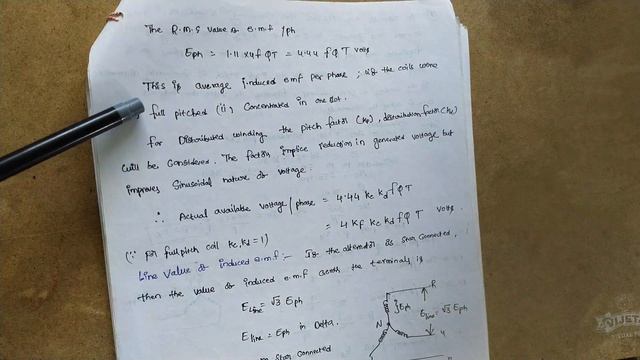 The R.M.S value of e.m.f /ph
Eph = 1.11 x4f ΦT = 4.44 f ΦT volts
This is average induced emf per phase ; if the coils were
full pitched (ii) Concentrated in one slot.
for Distributed winding the pitch factor (Kc), distribution factor (Kd)
will be Considered. The factors implies reduction in generated voltage but
improves Sinusoidal nature of voltage.
∴ Actual available voltage/phase = 4.44 Kc Kd f Φ T
= 4 Kf Kc Kd f Φ T volts
(∵ for full pitch coil Kc, Kd = 1)
Line Value of induced e.m.f :- If the alternator is Star Connected,
then the value of induced e.m.f across the terminals is
ELine = √3 Eph
R
Eph
ELine = √3 Eph
N
Y
ELine = Eph in Delta.
Star Connected